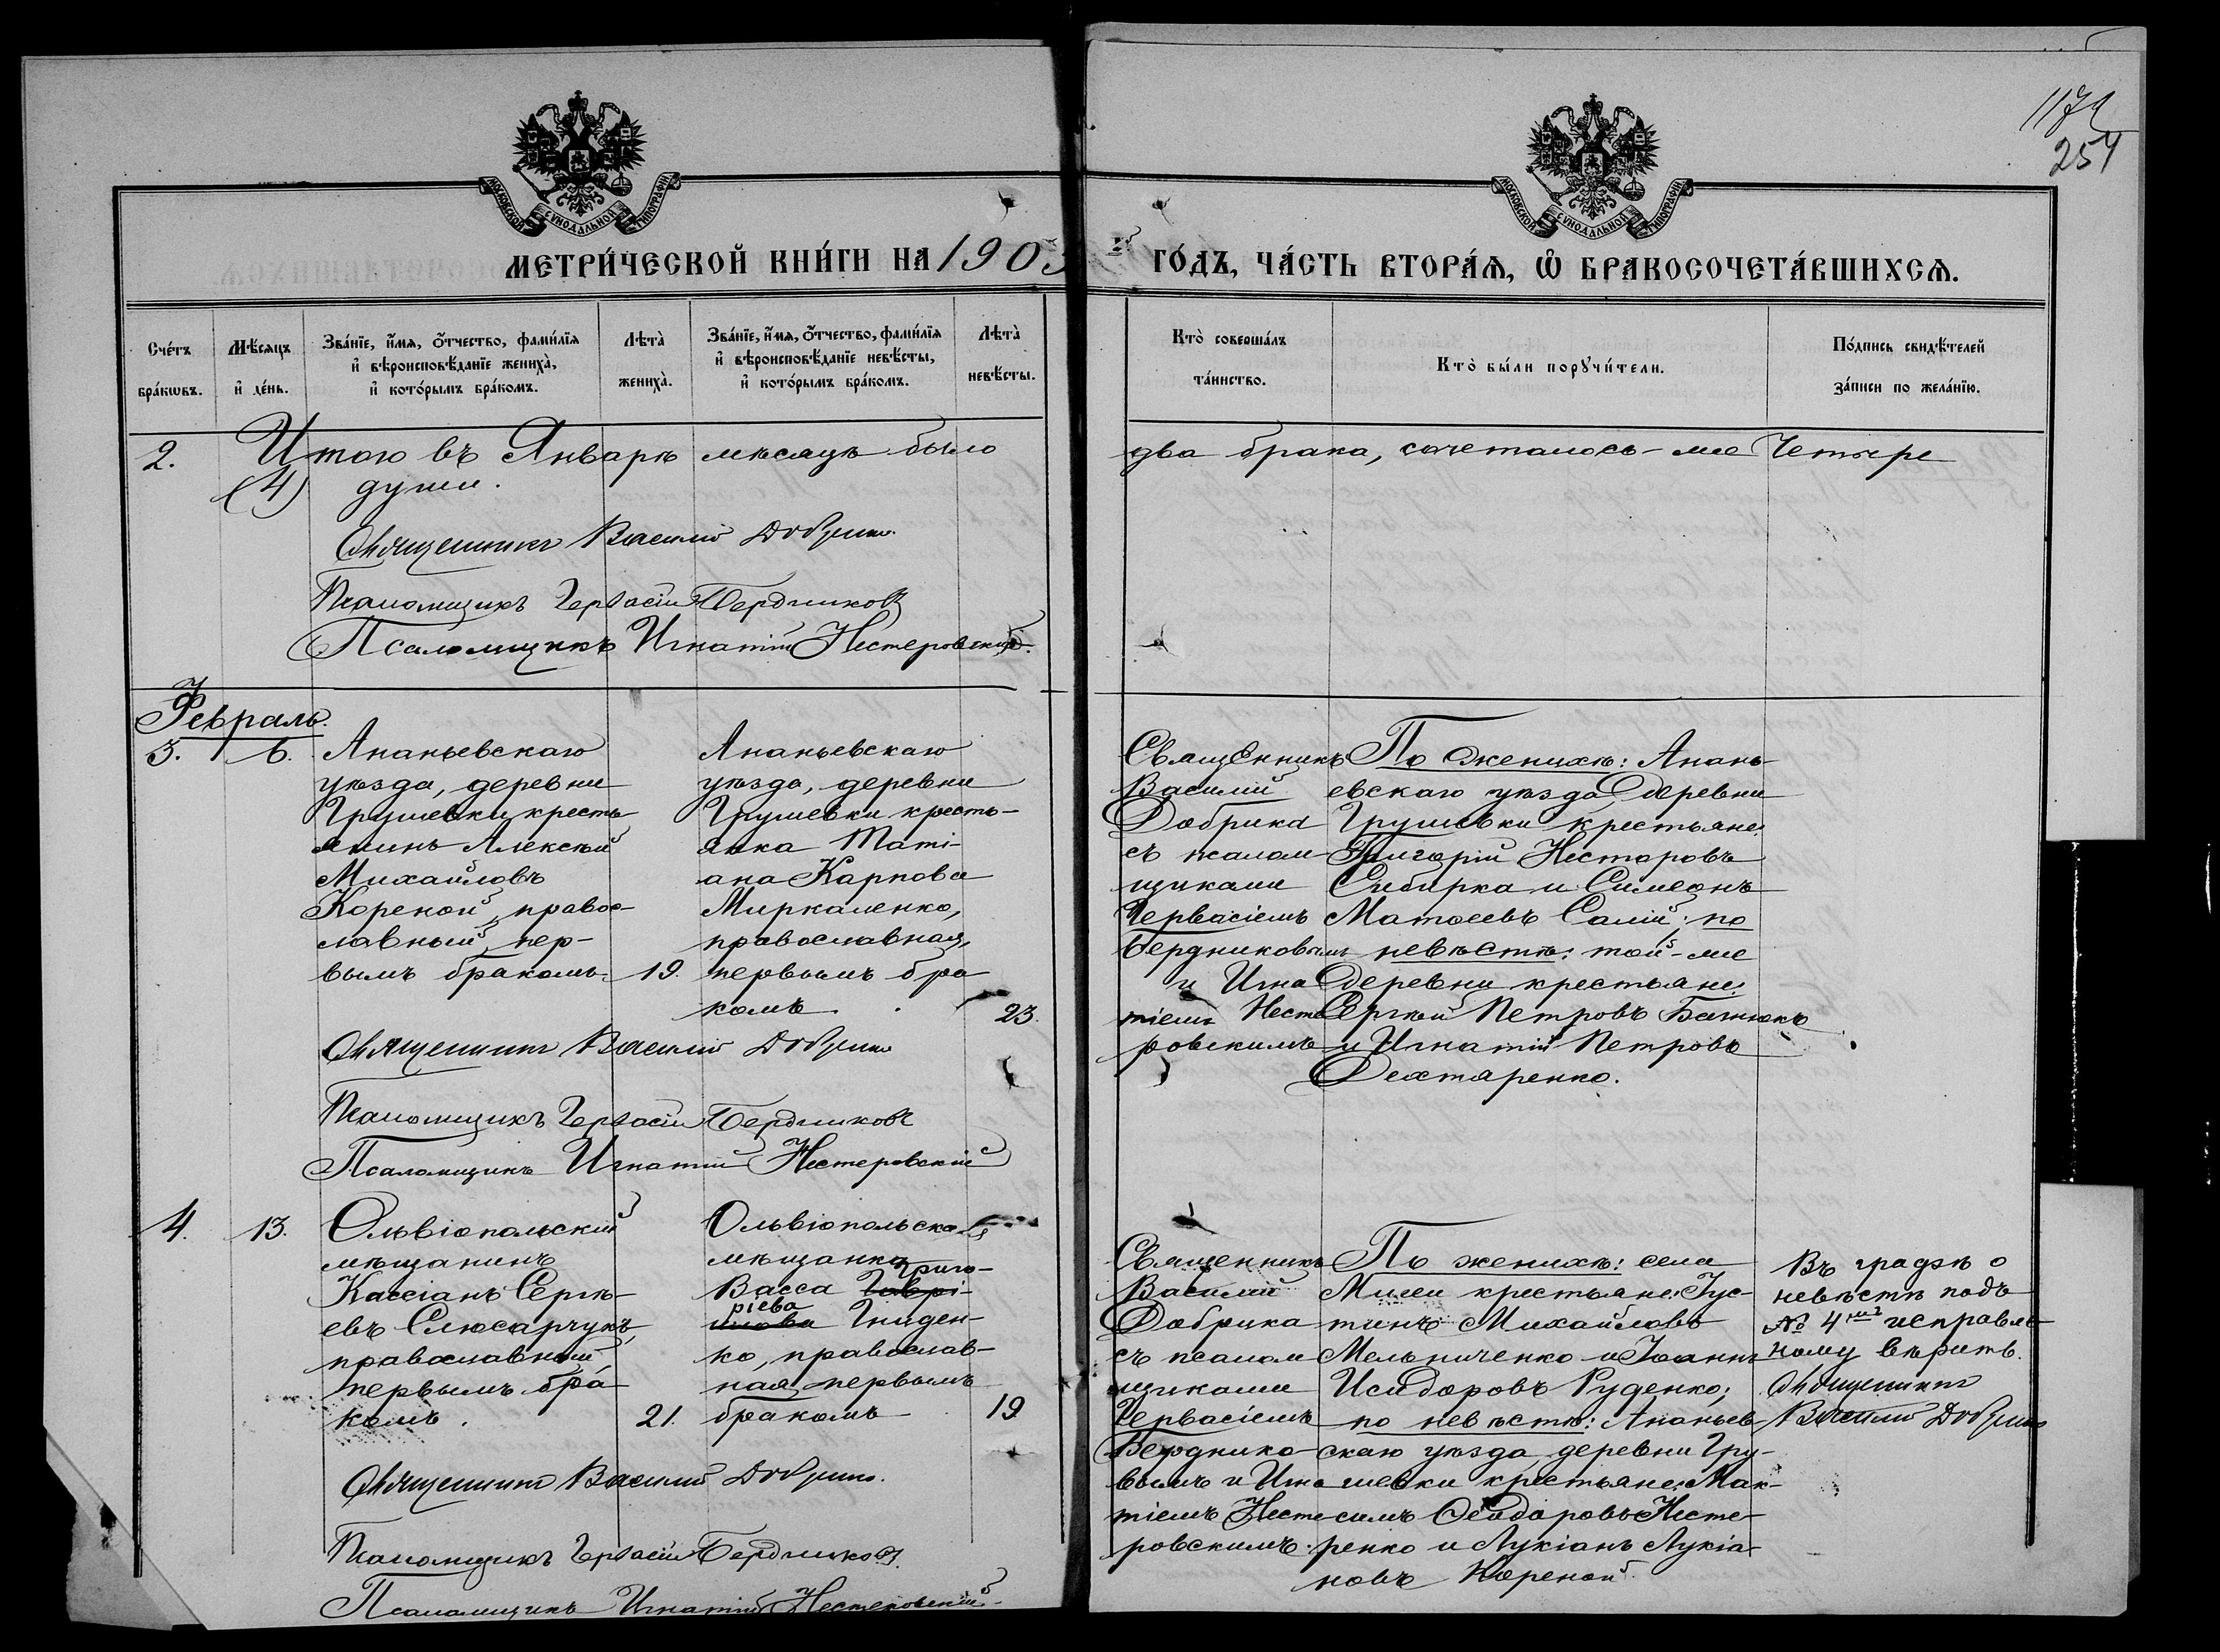 1171
254
МОСКОВСКОЙ СУНОДАЛЬНОЙ ТИПОГРАФІИ
МОСКОВСКОЙ СУНОДАЛЬНОЙ ТИПОГРАФІИ
МЕТРИ́ЧЕСКОЙ КНИ́ГИ НА 1903
й ГО́ДЪ, ЧА́СТЬ ВТОРА́Ѧ, Ѡ҆ БРАКОСОЧЕТА́ВШИХСѦ.
Сче́тъ бра́кѡвъ.
Мѣ́сѧцъ и҆ де́нь.
Зва́нїе, и҆́мѧ, ѻ҆́тчество, фами́лїѧ
и҆ вѣроисповѣ́данїе жениха̀,
и҆ кото́рымъ бра́комъ.
Лѣта̀ жениха̀.
Зва́нїе, и҆́мѧ, ѻ҆́тчество, фами́лїѧ
и҆ вѣроисповѣ́данїе невѣ́сты,
и҆ кото́рымъ бра́комъ.
Лѣта̀ невѣ́сты.
Кто̀ соверша́лъ
та́инство.
Кто̀ бы́ли порꙋчи́тели.
По́дпись свидѣ́телей
за́писи по жела́нїю.
2. Итого въ Январѣ мѣсяцѣ было два брака, сочеталось-же Четыре
(4) души.
Священникъ Василій Добрика.
Псаломщикъ Гервасій Бердниковъ
Псаломщикъ Игнатій Нестеровскій.
Февраль.
3. 6.
Ананьевскаго
уѣзда, деревни
Грушевки кресть-
янинъ Алексѣй
Михайловъ
Кореной, правос-
лавный, пер-
вымъ бракомъ. 19.
Ананьевскаго
уѣзда, деревни
Грушевки кресть-
янка Таті-
ана Карпова
Миркаленко,
православная,
первымъ бра
комъ. 23.
Священникъ
Василій
Добрика
съ псалом
щиками
Гервасіемъ
Бердниковымъ
и Игна
тіемъ Несте
ровскимъ
По женихѣ: Анань-
евскаго уѣзда, деревни
Грушевки крестьяне:
Григорій Несторовъ
Сибирка и Симеонъ
Матѳеевъ Салій; по
невѣстѣ: той-же
деревни крестьяне:
Сергѣй Петровъ Батюкъ
и Игнатій Петровъ
Дехтаренко.
Священникъ Василій Добрика
Псаломщикъ Гервасій Бердниковъ
Псаломщикъ Игнатій Нестеровскій
4. 13.
Ольвіопольскій
мѣщанинъ
Кассіанъ Сергѣ-
евъ Слюсарчукъ,
православный,
первымъ бра-
комъ. 21.
Ольвіопольская
мѣщанка
Григо-
Васса Гаврі-
ріева
илова Гниден-
ко, православ-
ная, первымъ
бракомъ 19
Священникъ
Василій
Добрика
съ псалом
щиками
Гервасіемъ
Берднико-
вымъ и Игна
тіемъ Несте
ровскимъ.
По женихѣ: села
Мигеи крестьяне: Іус-
тинъ Михайловъ
Мельниченко и Іоаннъ
Исидоровъ Руденко;
по невѣстѣ: Ананьев-
скаго уѣзда, деревни Гру-
шевки крестьяне: Мак-
симъ Сидоровъ Несте-
ренко и Лукіанъ Лукіа-
новъ Кореной.
Въ графѣ о
невѣстѣ подъ
№ 4мъ исправлен-
ному вѣрить.
Священникъ
Василій Добрика
Священникъ Василій Добрика.
Псаломщикъ Гервасій Бердниковъ.
Псаломщикъ Игнатій Нестеровскій.